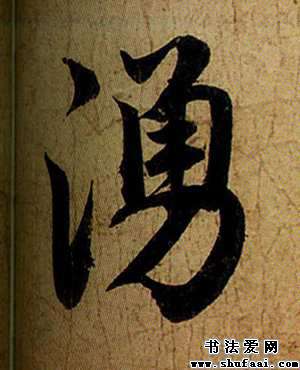 湧
书法爱网
www.shufaai.com